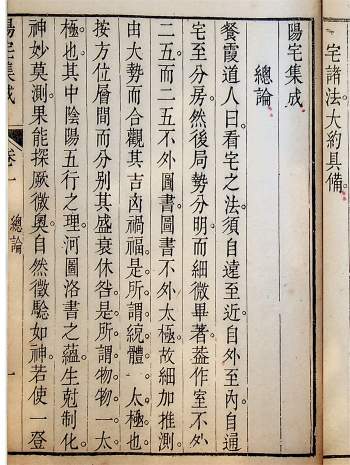 宅諸法大約具備
陽宅集成
總論
餐霞道人曰看宅之法須自遠至近自外至內自通
宅至分房然後局勢分明而細微畢著葢作室不外
二五而二五不外圖書圖書不外太極故細加推測
由大勢而合觀其吉凶禍福是所謂統體一太極也
按方位層間而分別其盛衰休咎是所謂物物一太
極也其中陰陽五行之理河圖洛書之蘊生尅制化
神妙莫測果能探厥微奥自然徵驗如神若使一登
陽宅集成
卷一
總論
一